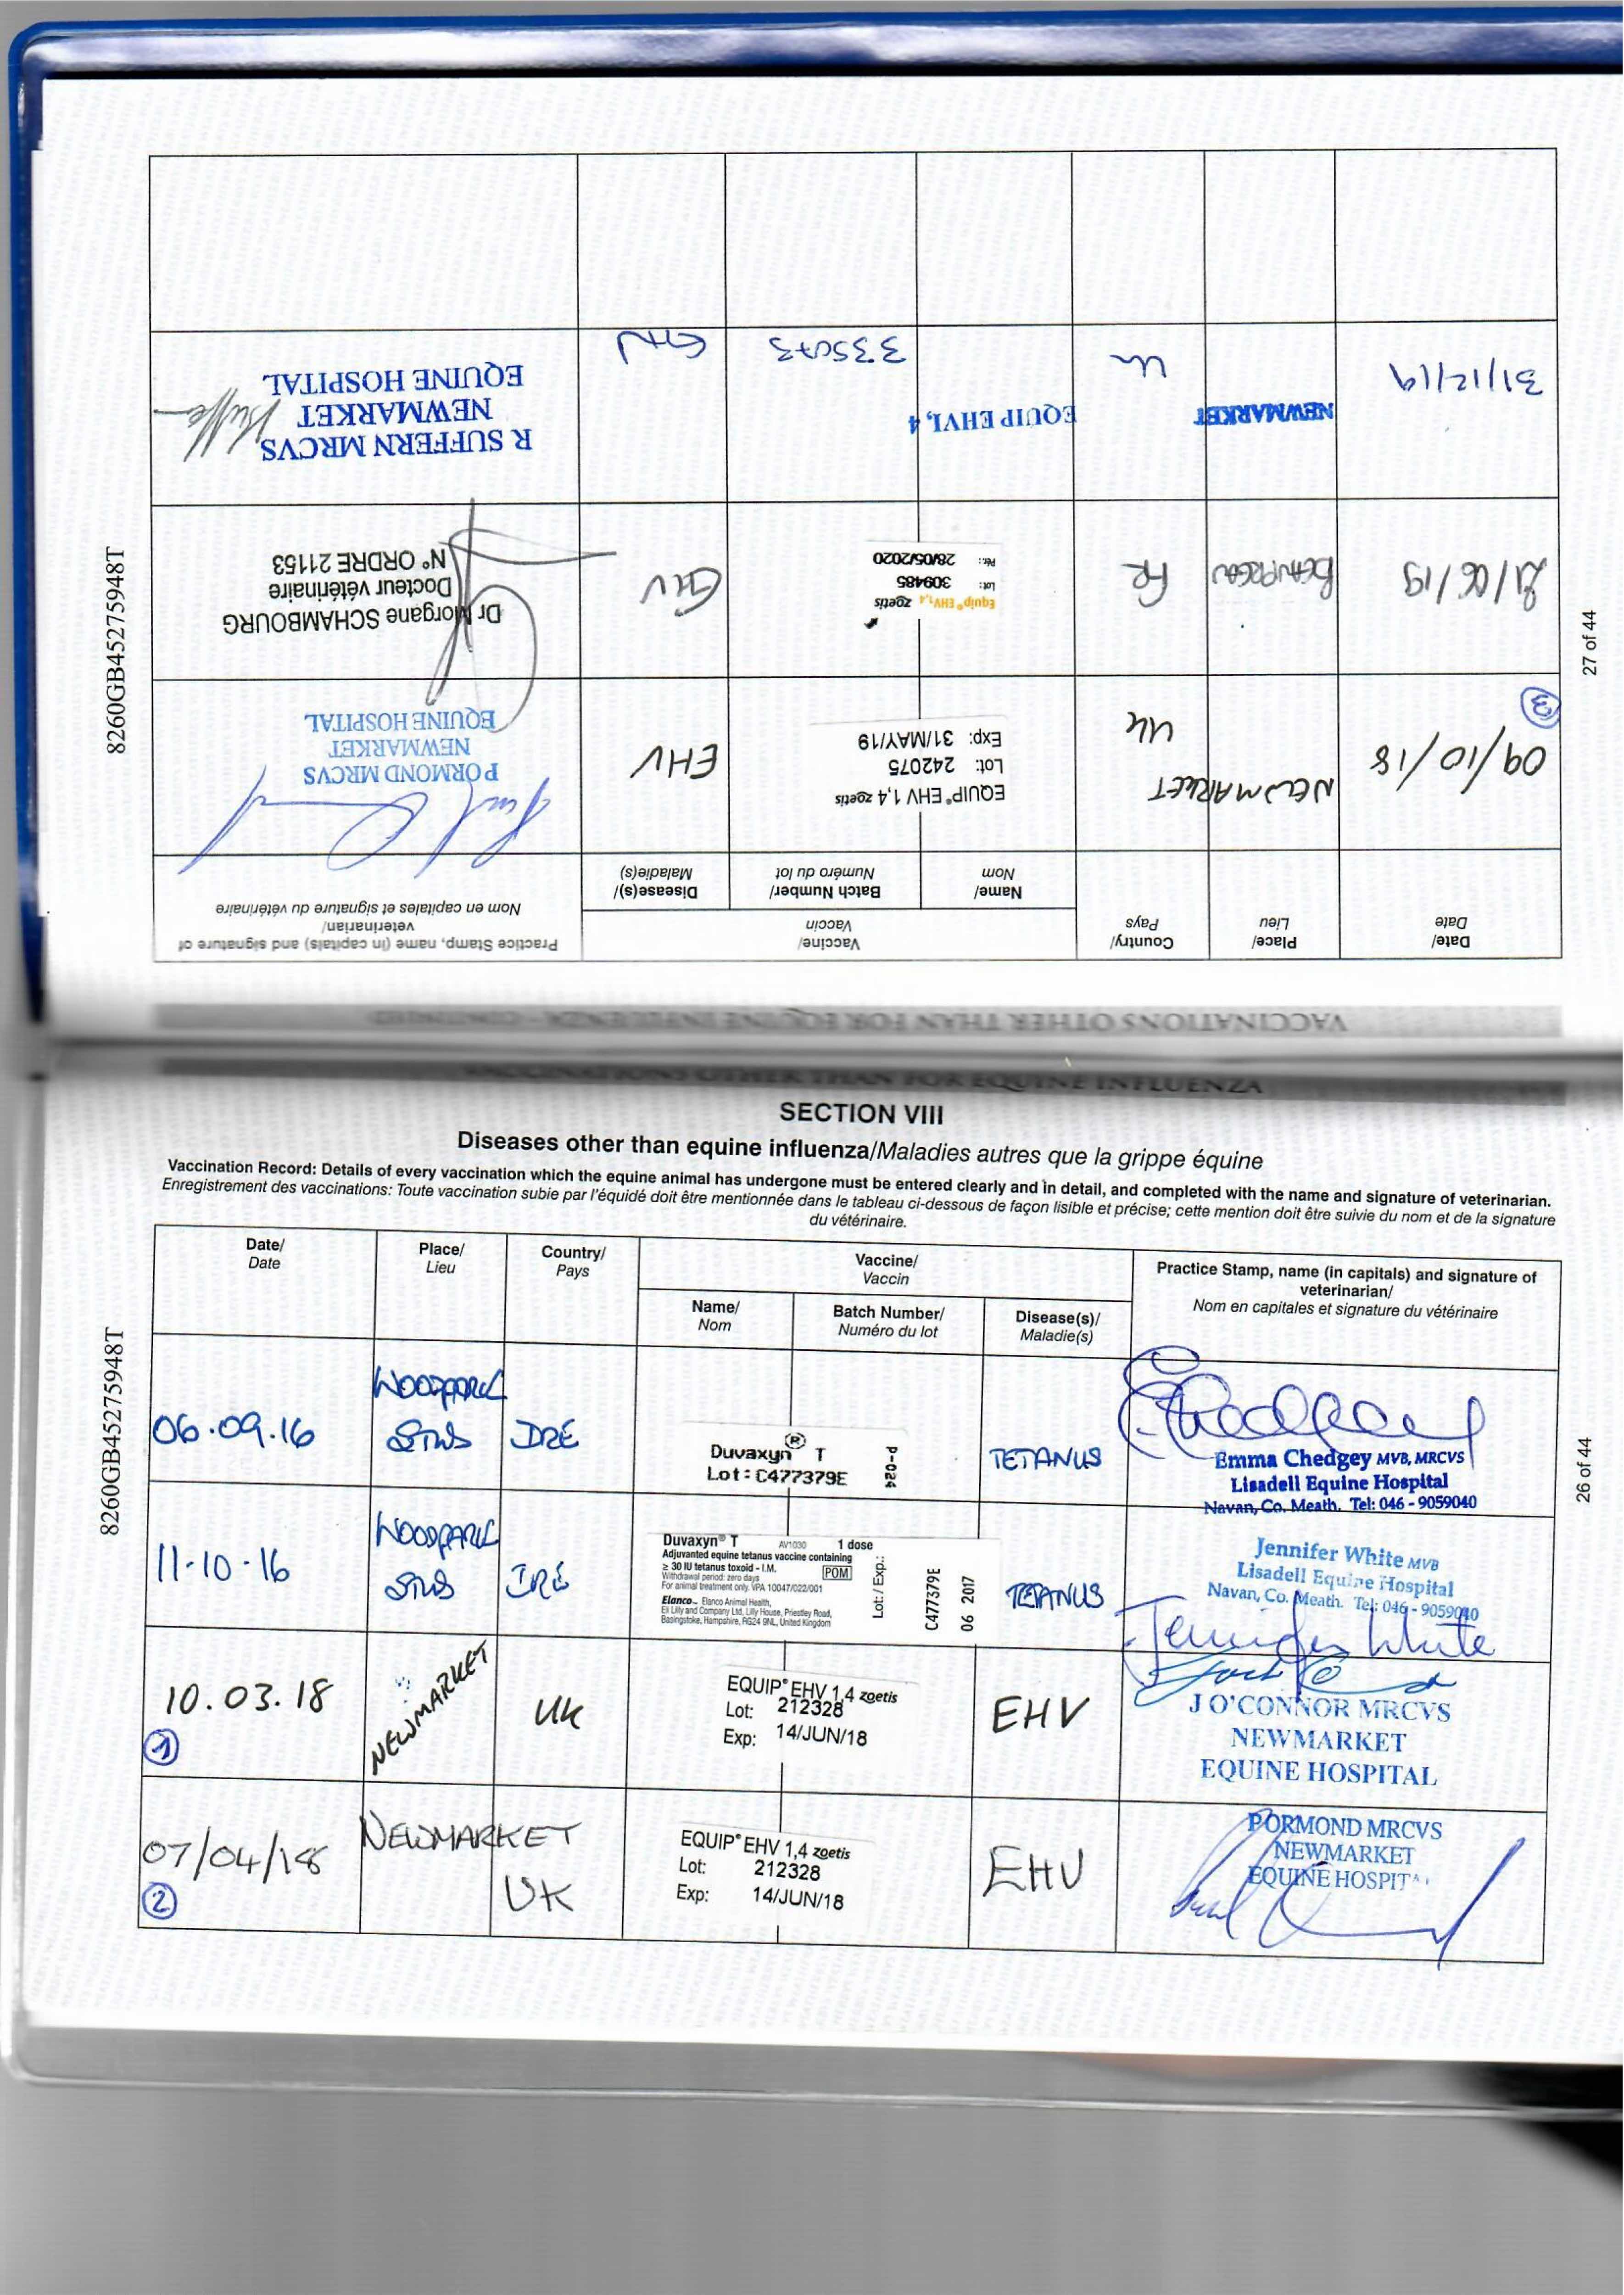 VACCINATIONS OTHER THAN FOR EQUINE INFLUENZA
SECTION VIII
Diseases other than equine influenza/Maladies autres que la grippe équine
Vaccination Record: Details of every vaccination which the equine animal has undergone must be entered clearly and in detail, and completed with the name and signature of veterinarian.
Enregistrement des vaccinations: Toute vaccination subie par l'équidé doit être mentionnée dans le tableau ci-dessous de façon lisible et précise; cette mention doit être suivie du nom et de la signature
du vétérinaire.
Date/
Date
Place/
Lieu
Country/
Pays
Vaccine/
Vaccin
Name/
Nom
Batch Number/
Numéro du lot
Disease(s)/
Maladie(s)
Practice Stamp, name (in capitals) and signature of
veterinarian/
Nom en capitales et signature du vétérinaire
06.09.16
WOODPARK
STUD
IRE
Duvaxyn® T
Lot: C477379E
P-024
TETANUS
Emma Chedgey MVB, MRCVS
Lisadell Equine Hospital
Navan, Co. Meath. Tel: 046 - 9059040
11-10-16
WOODPARK
STUD
IRE
Duvaxyn® T AV1030 1 dose
Adjuvanted equine tetanus vaccine containing
≥ 30 IU tetanus toxoid - I.M.
Withdrawal period: zero days POM
For animal treatment only. VPA 10047/022/001
Elanco Elanco Animal Health,
Eli Lilly and Company Ltd, Lilly House, Priestley Road,
Basingstoke, Hampshire, RG24 9NL, United Kingdom
Lot / Exp.:
C477379E
06 2017
TETANUS
Jennifer White MVB
Lisadell Equine Hospital
Navan, Co. Meath. Tel: 046 - 9059040
Jennifer White
10.03.18
1
NEWMARKET
UK
EQUIP® EHV 1,4 zoetis
Lot: 212328
Exp: 14/JUN/18
EHV
J O'CONNOR MRCVS
NEWMARKET
EQUINE HOSPITAL
07/04/18
2
NEWMARKET
UK
EQUIP® EHV 1,4 zoetis
Lot: 212328
Exp: 14/JUN/18
EHV
PORMOND MRCVS
NEWMARKET
EQUINE HOSPITA
8260GB45275948T
26 of 44
VACCINATIONS OTHER THAN FOR EQUINE INFLUENZA - CONTINUED
Date/
Date
Place/
Lieu
Country/
Pays
Vaccine/
Vaccin
Name/
Nom
Batch Number/
Numéro du lot
Disease(s)/
Maladie(s)
Practice Stamp, name (in capitals) and signature of
veterinarian/
Nom en capitales et signature du vétérinaire
09/10/18
3
NEWMARKET
UK
EQUIP® EHV 1,4 zoetis
Lot: 242075
Exp: 31/MAY/19
EHV
PORMOND MRCVS
NEWMARKET
EQUINE HOSPITAL
21/06/19
FR
Equip® EHV1,4 zoetis
Lot: 309485
Pér.: 28/05/2020
EHV
Dr Morgane SCHAMBOURG
Docteur vétérinaire
N° ORDRE 21153
31/12/19
NEWMARKET
UK
EQUIP EHV1, 4
335073
EHV
R SUFFERN MRCVS
NEWMARKET
EQUINE HOSPITAL
8260GB45275948T
27 of 44